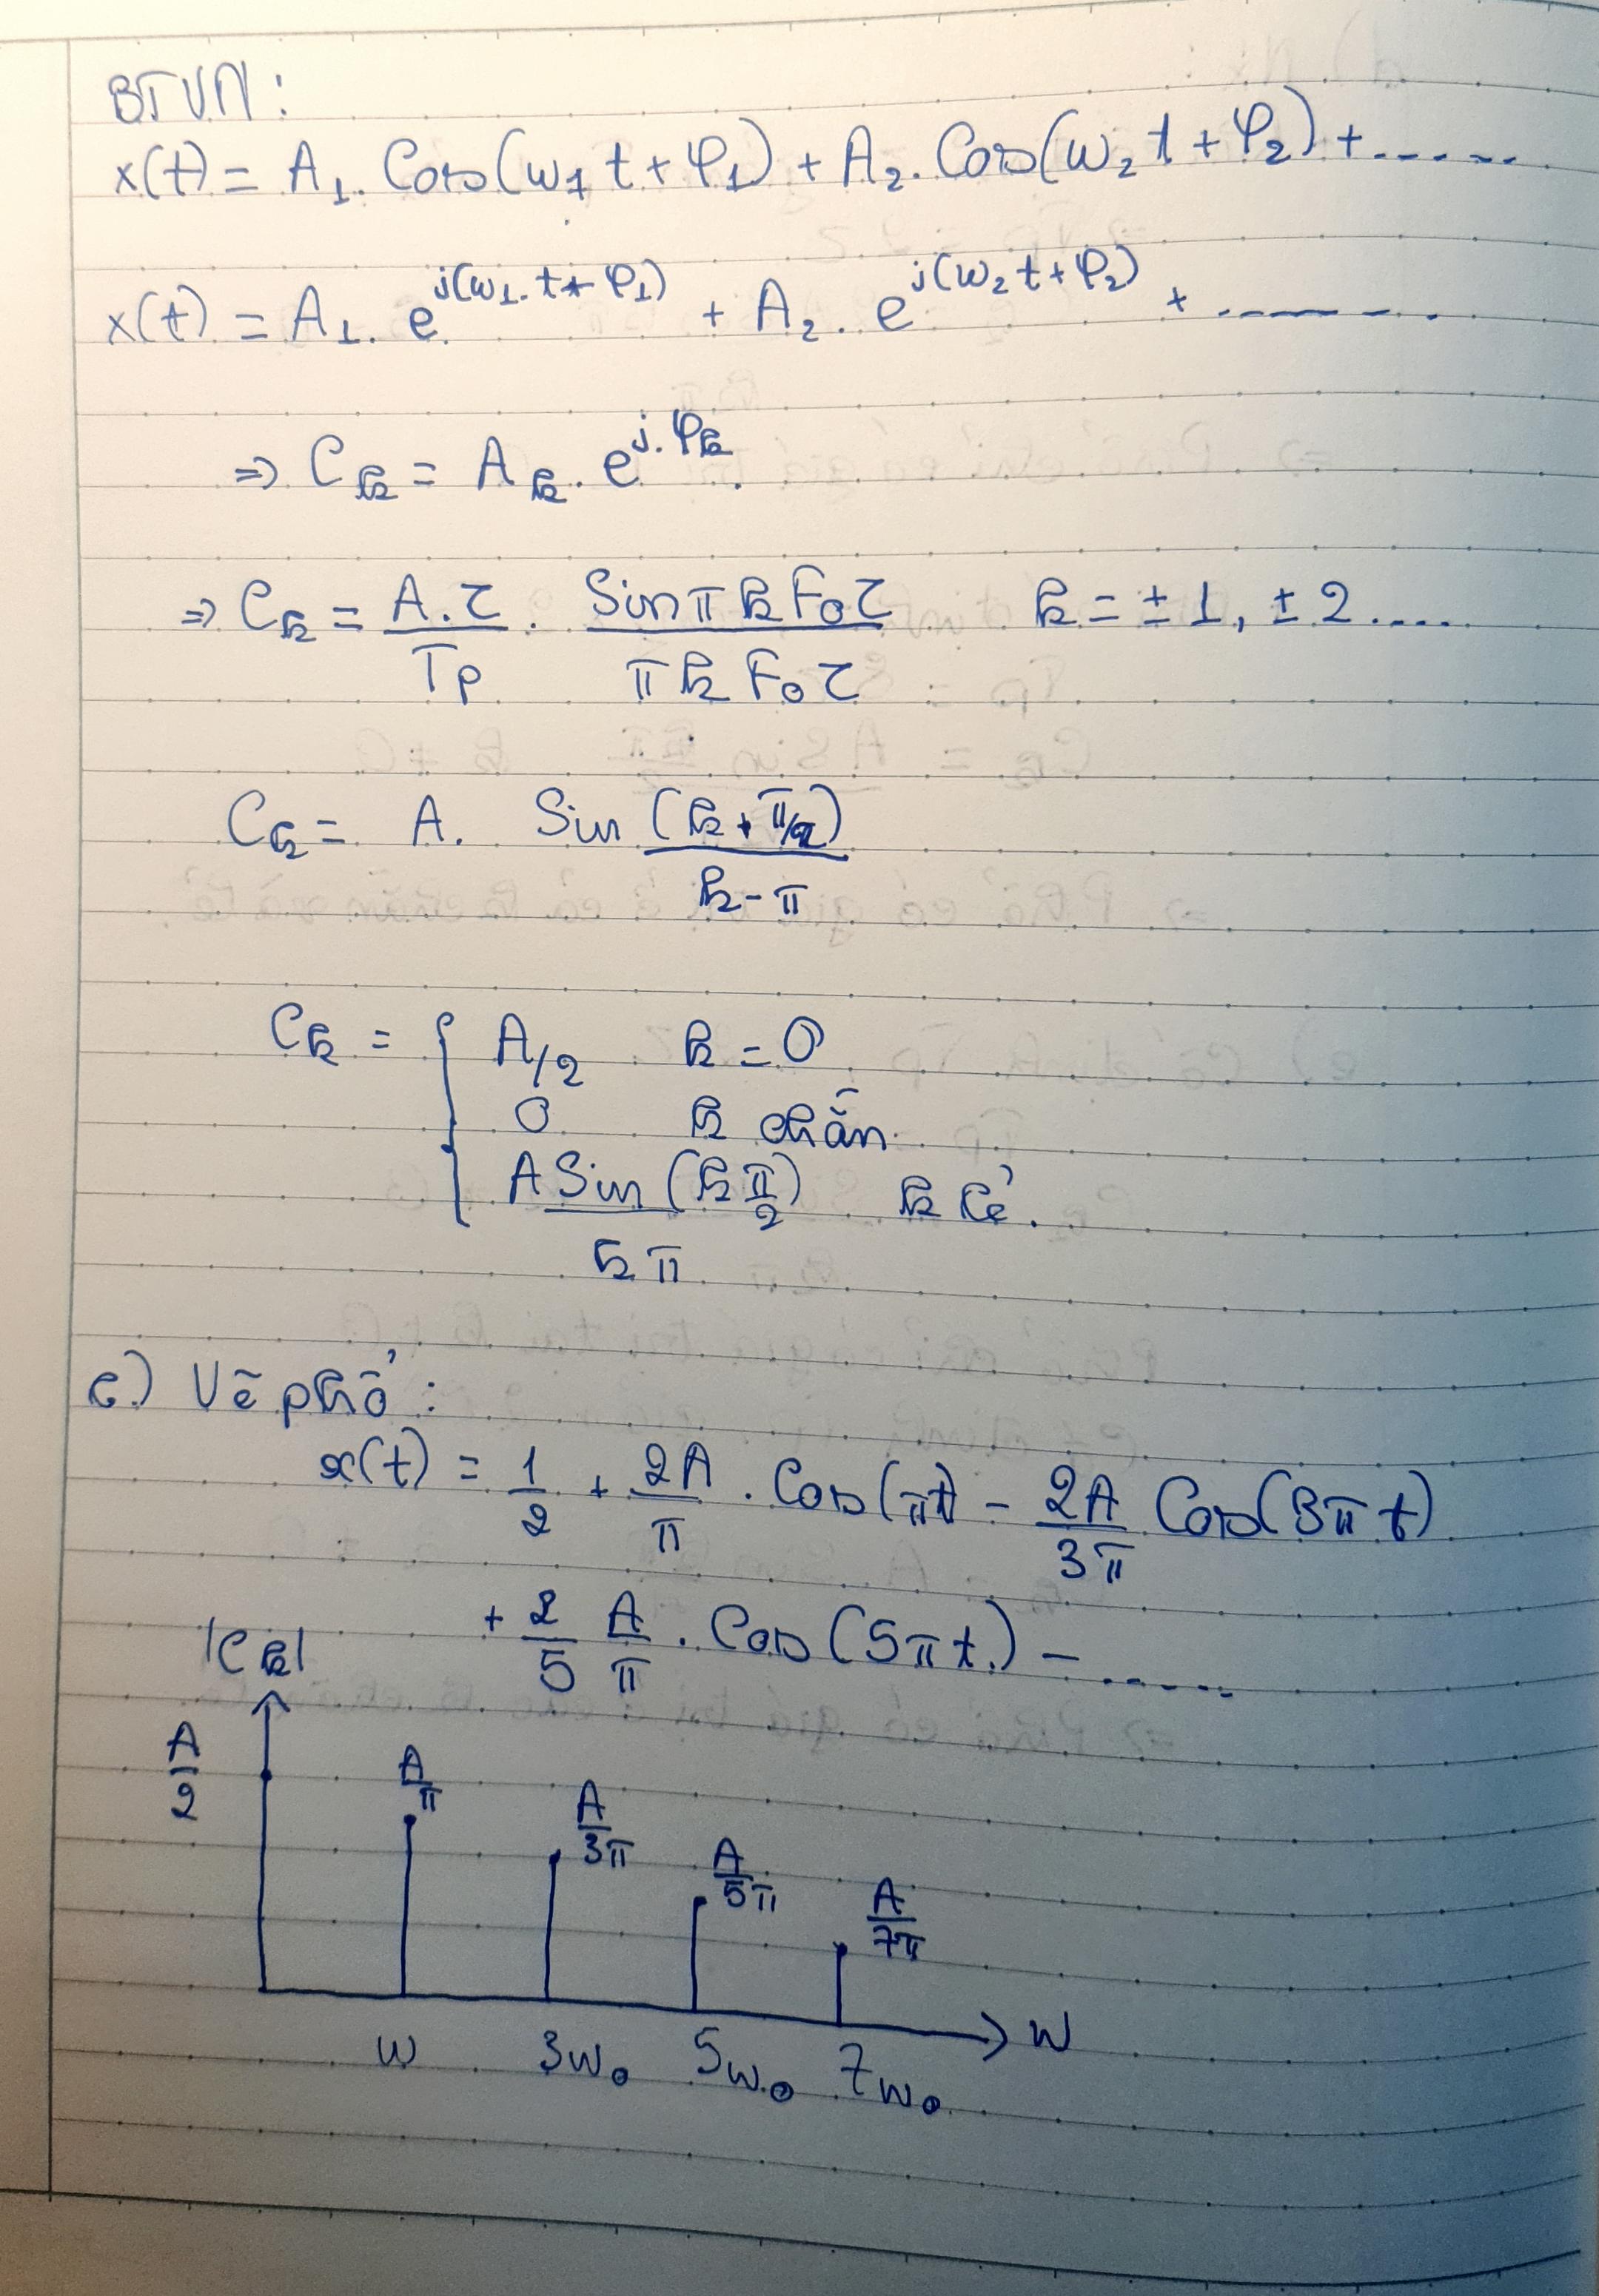 BTVN:
x(t) = A₁. Cos(ω₁ t + φ₁) + A₂. Cos(ω₂ t + φ₂) + ......
x(t) = A₁. e^{j(ω₁. t + φ₁)} + A₂. e^{j(ω₂ t + φ₂)} + ......
⇒ C_k = A_k. e^{j.φ_k}.
⇒ C_k = \frac{A.τ}{Tp} . \frac{Sin π k F₀ τ}{π k F₀ τ} k = ± 1, ± 2....
C_k = A. Sin \frac{(k . π/2)}{k - π}
C_k = { A/2 k = 0
0 k chẵn
\frac{A Sin (k \frac{π}{2})}{k π} k lẻ.
c) Vẽ phổ:
x(t) = \frac{1}{2} + \frac{2A}{π} . Cos(πt) - \frac{2A}{3π} Cos(3π t)
+ \frac{2}{5} \frac{A}{π} . Cos(5πt.) - ......
|C_k|
\frac{A}{2} \frac{A}{π} \frac{A}{3π} \frac{A}{5π} \frac{A}{7π}
ω 3ω₀ 5ω₀ 7ω₀ ω